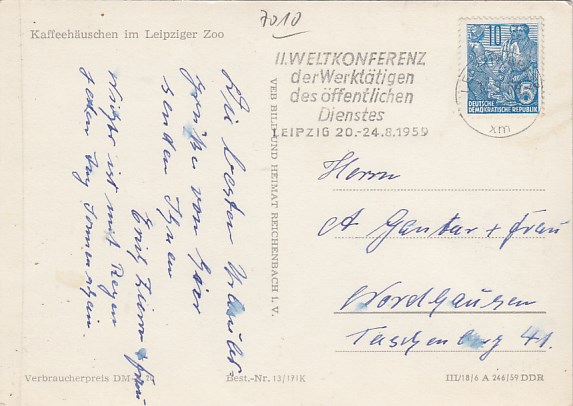 7010
Kaffeehäuschen im Leipziger Zoo
II. WELTKONFERENZ
der Werktätigen
des öffentlichen
Dienstes
LEIPZIG 20.-24.8.1959
10
5
DEUTSCHE
DEMOKRATISCHE REPUBLIK
xm
Die besten Urlaubs
grüße von hier
senden Ihnen
Frau
nichts ist mit Regen
jeden Tag Sonnenschein.
VEB BILD UND HEIMAT REICHENBACH i. V.
Herrn
A Gantar + Frau
Nordhausen
Taschenberg 41.
Verbraucherpreis DM
Best.-Nr. 13/171K
III/18/6 A 246/59 DDR